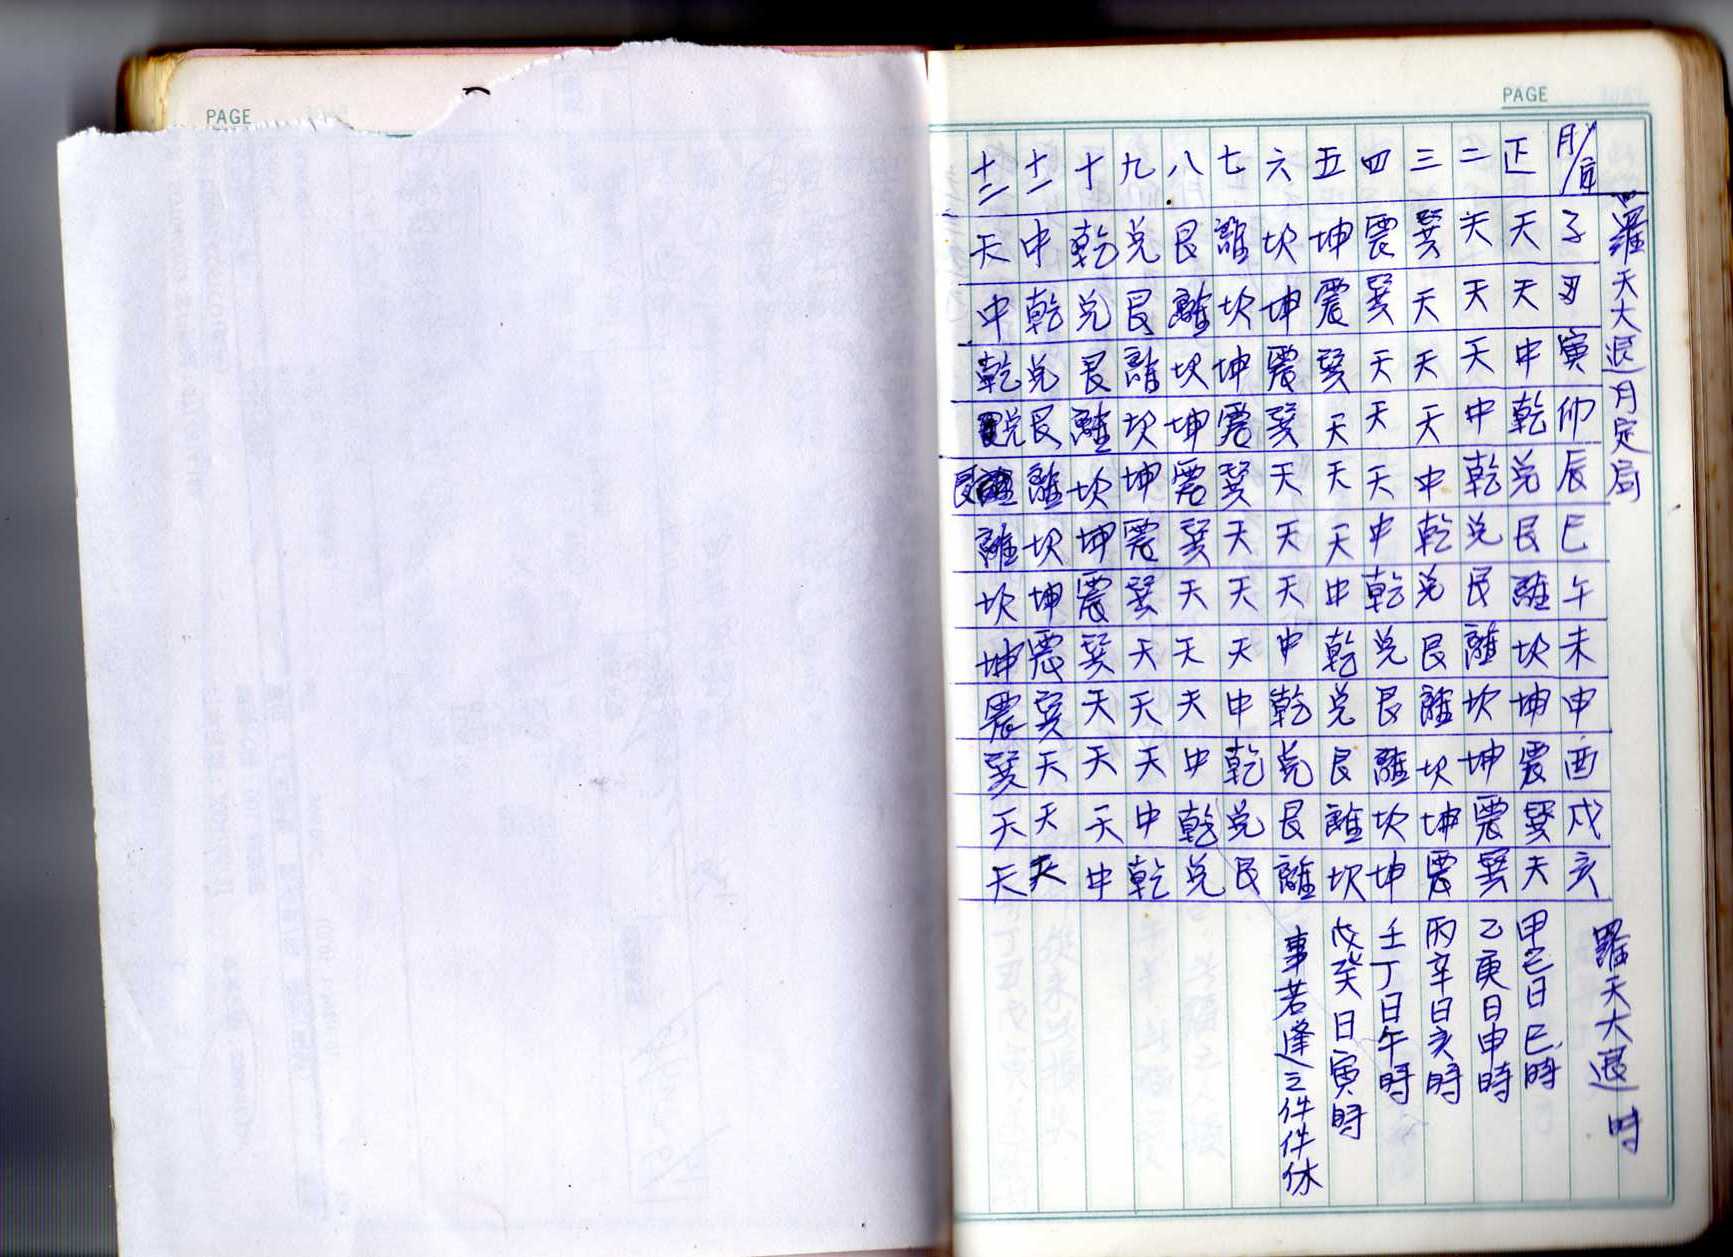 PAGE
PAGE
羅天大退月定局
月/宮子丑寅卯辰巳午未申酉戌亥
正天天中乾兌艮離坎坤震巽天
二天天天中乾兌艮離坎坤震巽
三巽天天天中乾兌艮離坎坤震
四震巽天天天中乾兌艮離坎坤
五坤震巽天天天中乾兌艮離坎
六坎坤震巽天天天中乾兌艮離
七離坎坤震巽天天天中乾兌艮
八艮離坎坤震巽天天天中乾兌
九兌艮離坎坤震巽天天天中乾
十乾兌艮離坎坤震巽天天天中
十一中乾兌艮離坎坤震巽天天天
十二天中乾兌艮離坎坤震巽天天
羅天大退時
甲己日巳時
乙庚日申時
丙辛日亥時
壬丁日午時
戊癸日寅時
事若逢之件件休